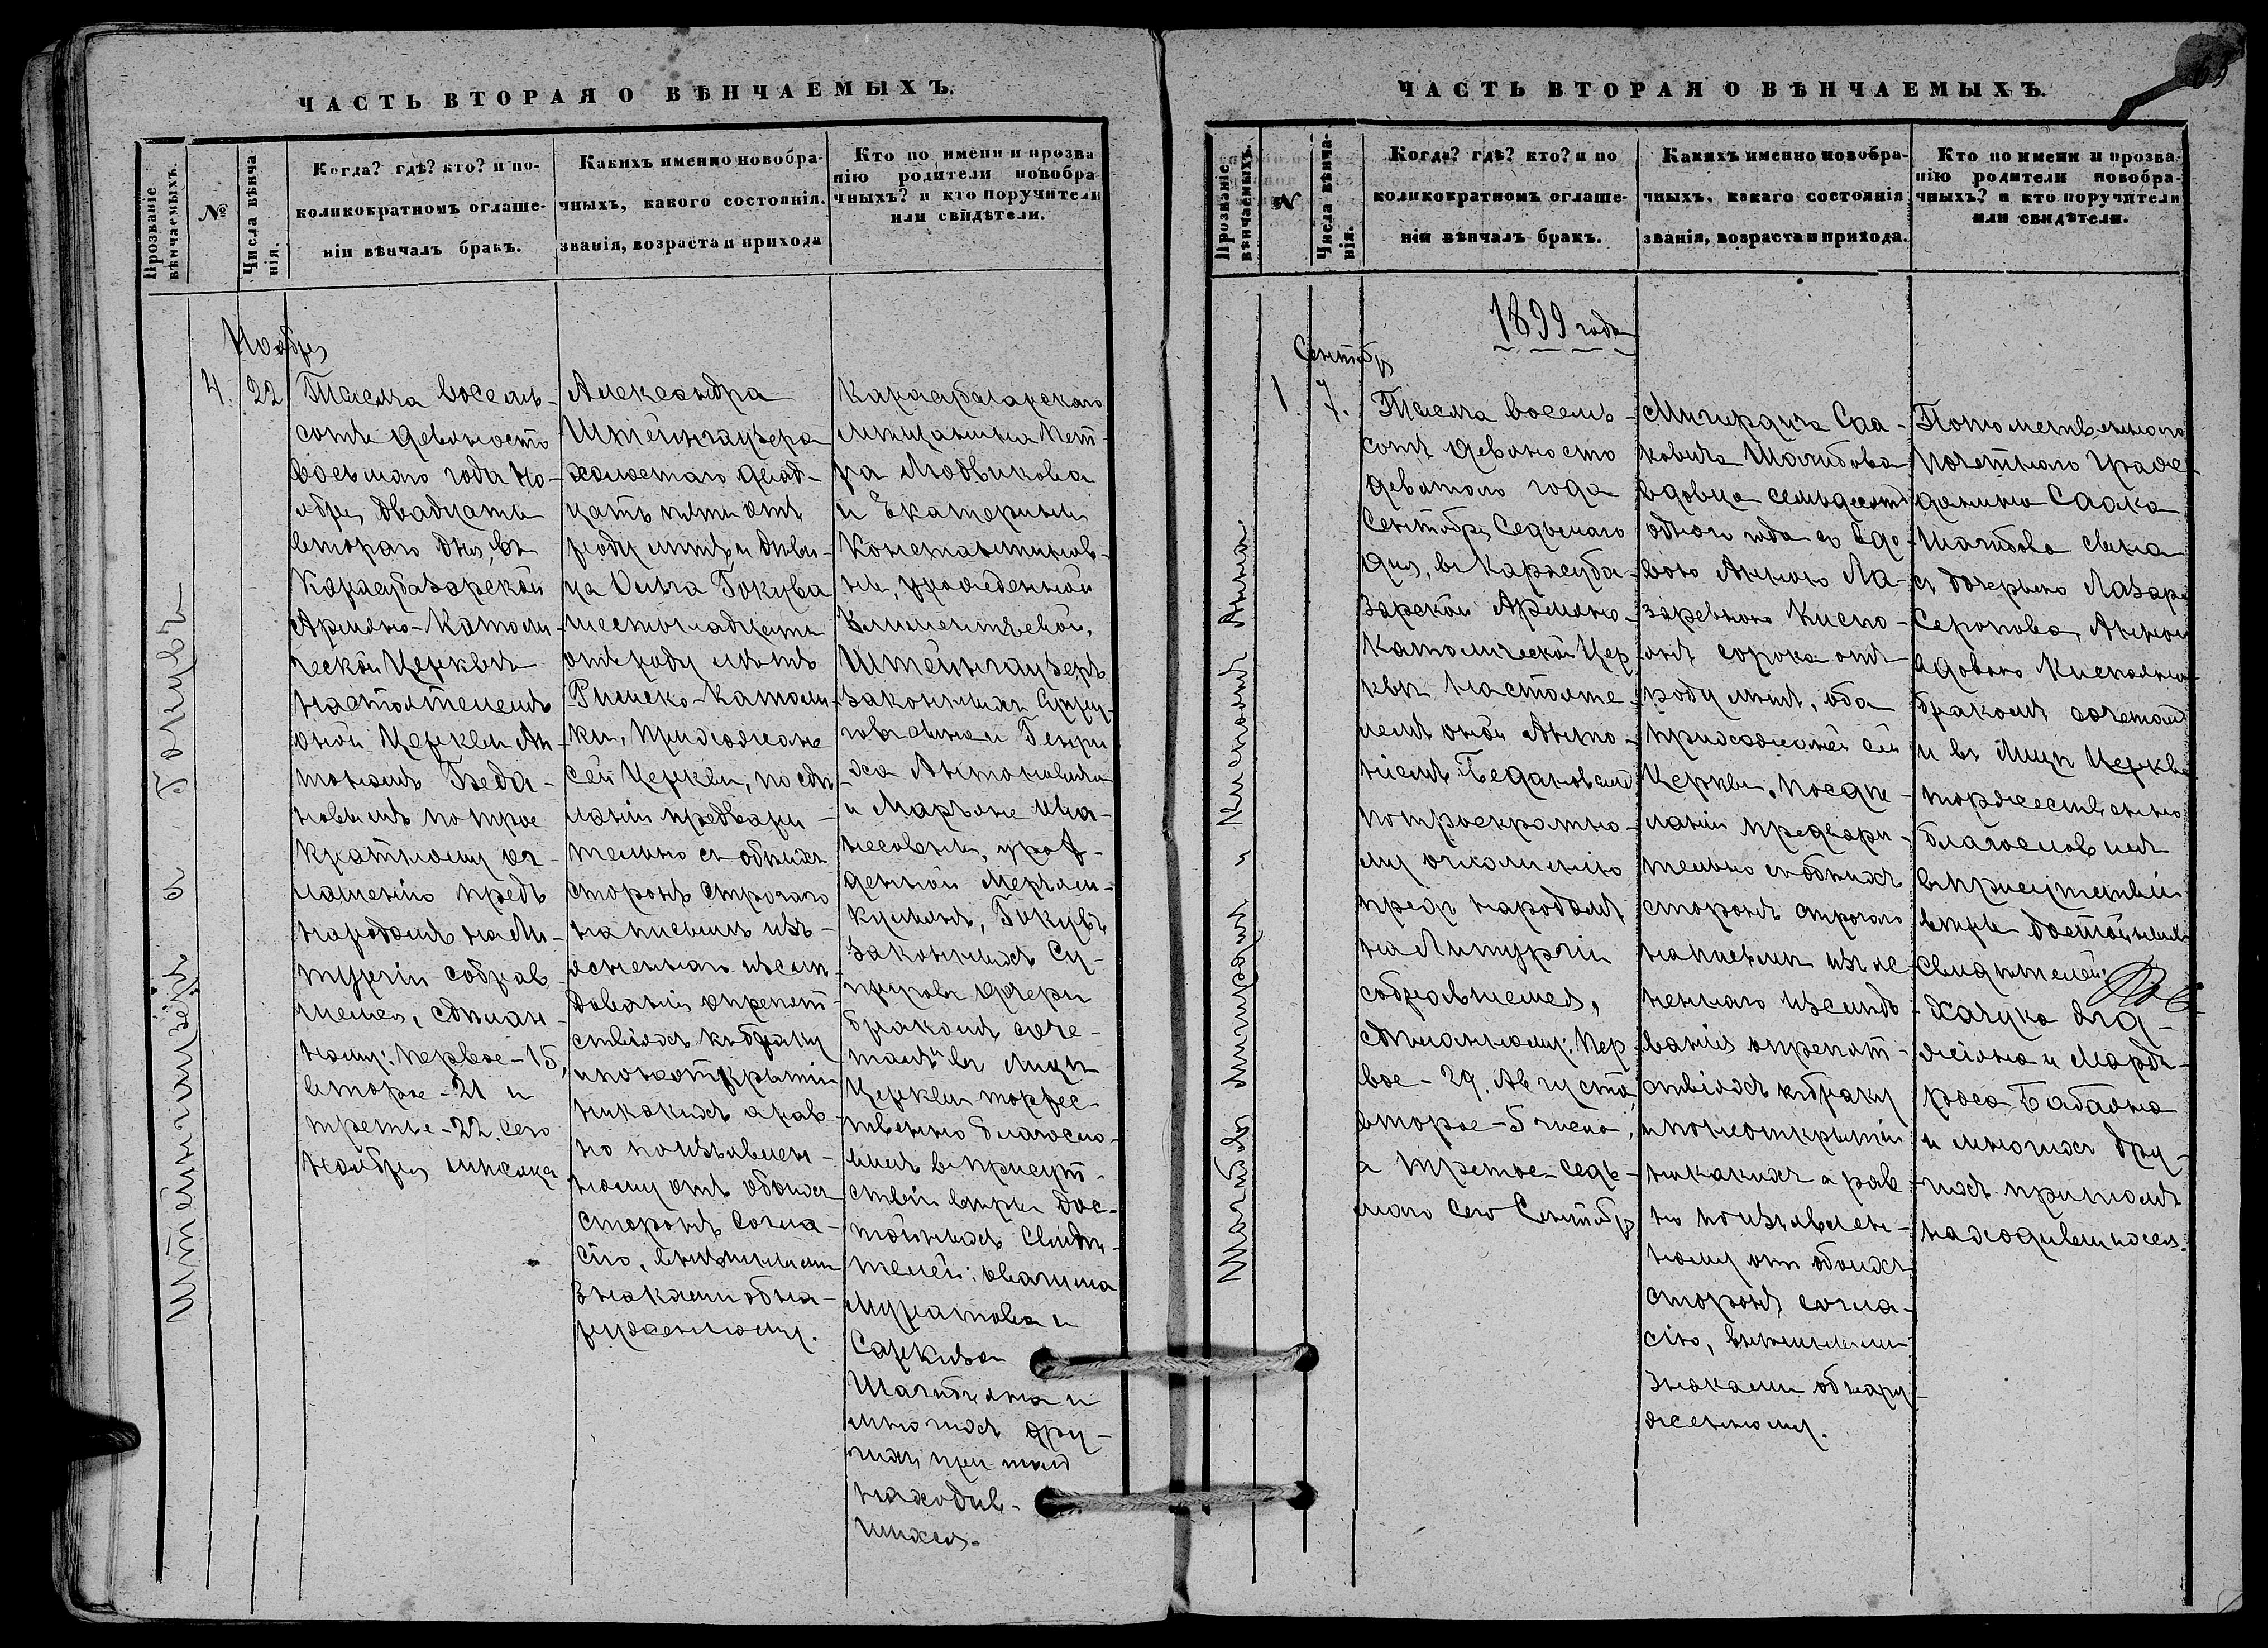 ЧАСТЬ ВТОРАЯ О ВѢНЧАЕМЫХЪ.
Прозваніе вѣнчаемыхъ.
№
Числа вѣнча-
нія.
Когда? гдѣ? кто? и по-
коликократномъ оглаше-
ніи вѣнчалъ бракъ.
Какихъ именно новобра-
чныхъ, какого состоянія.
званія, возраста и прихода
Кто по имени и прозва
нію родители новобра
чныхъ? и кто поручители
или свидѣтели.
Штейнгаузеръ и Бокувъ
Ноября
4. 22
Тысяча восемь-
сотъ девяносто
восьмаго года но-
ября двадцать
втораго дня, въ
Карасубазарской
Армяно-Католи-
ческой Церквѣ
настоятелемъ
оной Церкви Ан-
тонымъ Беда-
новымъ по трое
кратному ог-
лашенію предъ
народомъ на Ли-
тургіи собрав
шемся, сдѣлан-
ному: первое-15,
второе-21 и
третье-22. сего
ноября мѣсяца
Александра
Штейнгаузера
холостаго двад-
цать пяти отъ
роду лѣтъ и дѣви-
ца Ольга Бокува
шестнадцати
отъ роду лѣтъ
Римско-Католи-
ки, прихожане
сей Церкви, по сдѣ
ланіи предвари-
тельно съ обѣихъ
сторонъ строгаго
на письмѣ изъ-
ясненнаго изслѣ-
дованія опрепят-
ствіяхъ къ браку
и по неоткрытіи
никакихъ а рав-
но по изъявлен-
ному отъ обоихъ
сторонъ согла-
сію, внѣшними
знаками обна-
руженному.
Карасубазарскаго
мѣщанина Пет-
ра Людвикова
и Екатерины
Константинов-
ны, урожденной
Климентьевой,
Штейнгаузеръ
законныхъ Супру-
говъ сына и Генри
ха Антоновича
и Марьяне Ива-
несовны, урож-
денной
Бокувъ
законныхъ Су-
пруговъ дочери
бракомъ соче-
талъ и въ лицѣ
Церкви торжес-
твенно благосло-
вилъ въ присут-
ствіи вѣры дос-
тойныхъ Свидѣ-
телей:
Муратова и
Саркиза
Шагибьяна и
многихъ дру-
гихъ при томъ
находив-
шихся.
ЧАСТЬ ВТОРАЯ О ВѢНЧАЕМЫХЪ.
Прозваніе вѣнчаемыхъ.
№
Числа вѣнча-
нія.
Когда? гдѣ? кто? и по
коликократномъ оглаше-
ніи вѣнчалъ бракъ.
Какихъ именно новобра-
чныхъ, какаго состоянія
званія, возраста и прихода.
Кто по имени и прозва-
нію родители новобра-
чныхъ? и кто поручители
или свидѣтели.
Шагибовъ Мигирдичъ и Киспоянъ Анна
1899 года
Сентябр
1. 7.
Тысяча восемь-
сотъ девяносто
девятого года
Сентября Седьмаго
дня, въ Карасуба-
зарской Армяно-
Католической Цер
квѣ настояте-
лемъ оной Анто-
ніемъ Бедановымъ
по троекратно-
му оглашенію
предъ народомъ
на Литургіи
собравшемся,
сдѣланному: пер
вое-29. Августа,
второе-5 числа,
а третье-седь-
маго сего Сентября
Мигирдича Саа-
ковича Шагибова
вдовца семьдесятъ
одного года съ вдо-
вою Анною Ла-
заревною Киспо-
янъ сорока отъ
роду лѣтъ, оба
прихожане сей
Церкви. По сдѣ-
ланіи предвари-
тельно съ обѣихъ
сторонъ строгаго
на письмѣ изъяс
неннаго изслѣдо
ванія опрепят-
ствіяхъ къ браку
и по неоткрытіи
никакихъ а рав
но по изъявлен-
ному отъ обоихъ
сторонъ согла-
сію, внѣшними
знаками обнару
женному.
Потомственнаго
почетнаго граж-
данина Саака
Шагибова сына
съ дочерью Лазаря
Серопова Анною
вдовою Киспоянъ
бракомъ сочеталъ
и въ лицѣ Церкви
торжественно
благословилъ
въ присутствіи
вѣры достойныхъ
свидѣтелей:
Хачука
и Марди-
роса Бабаяна
и многихъ дру-
гихъ при томъ
находившихся.